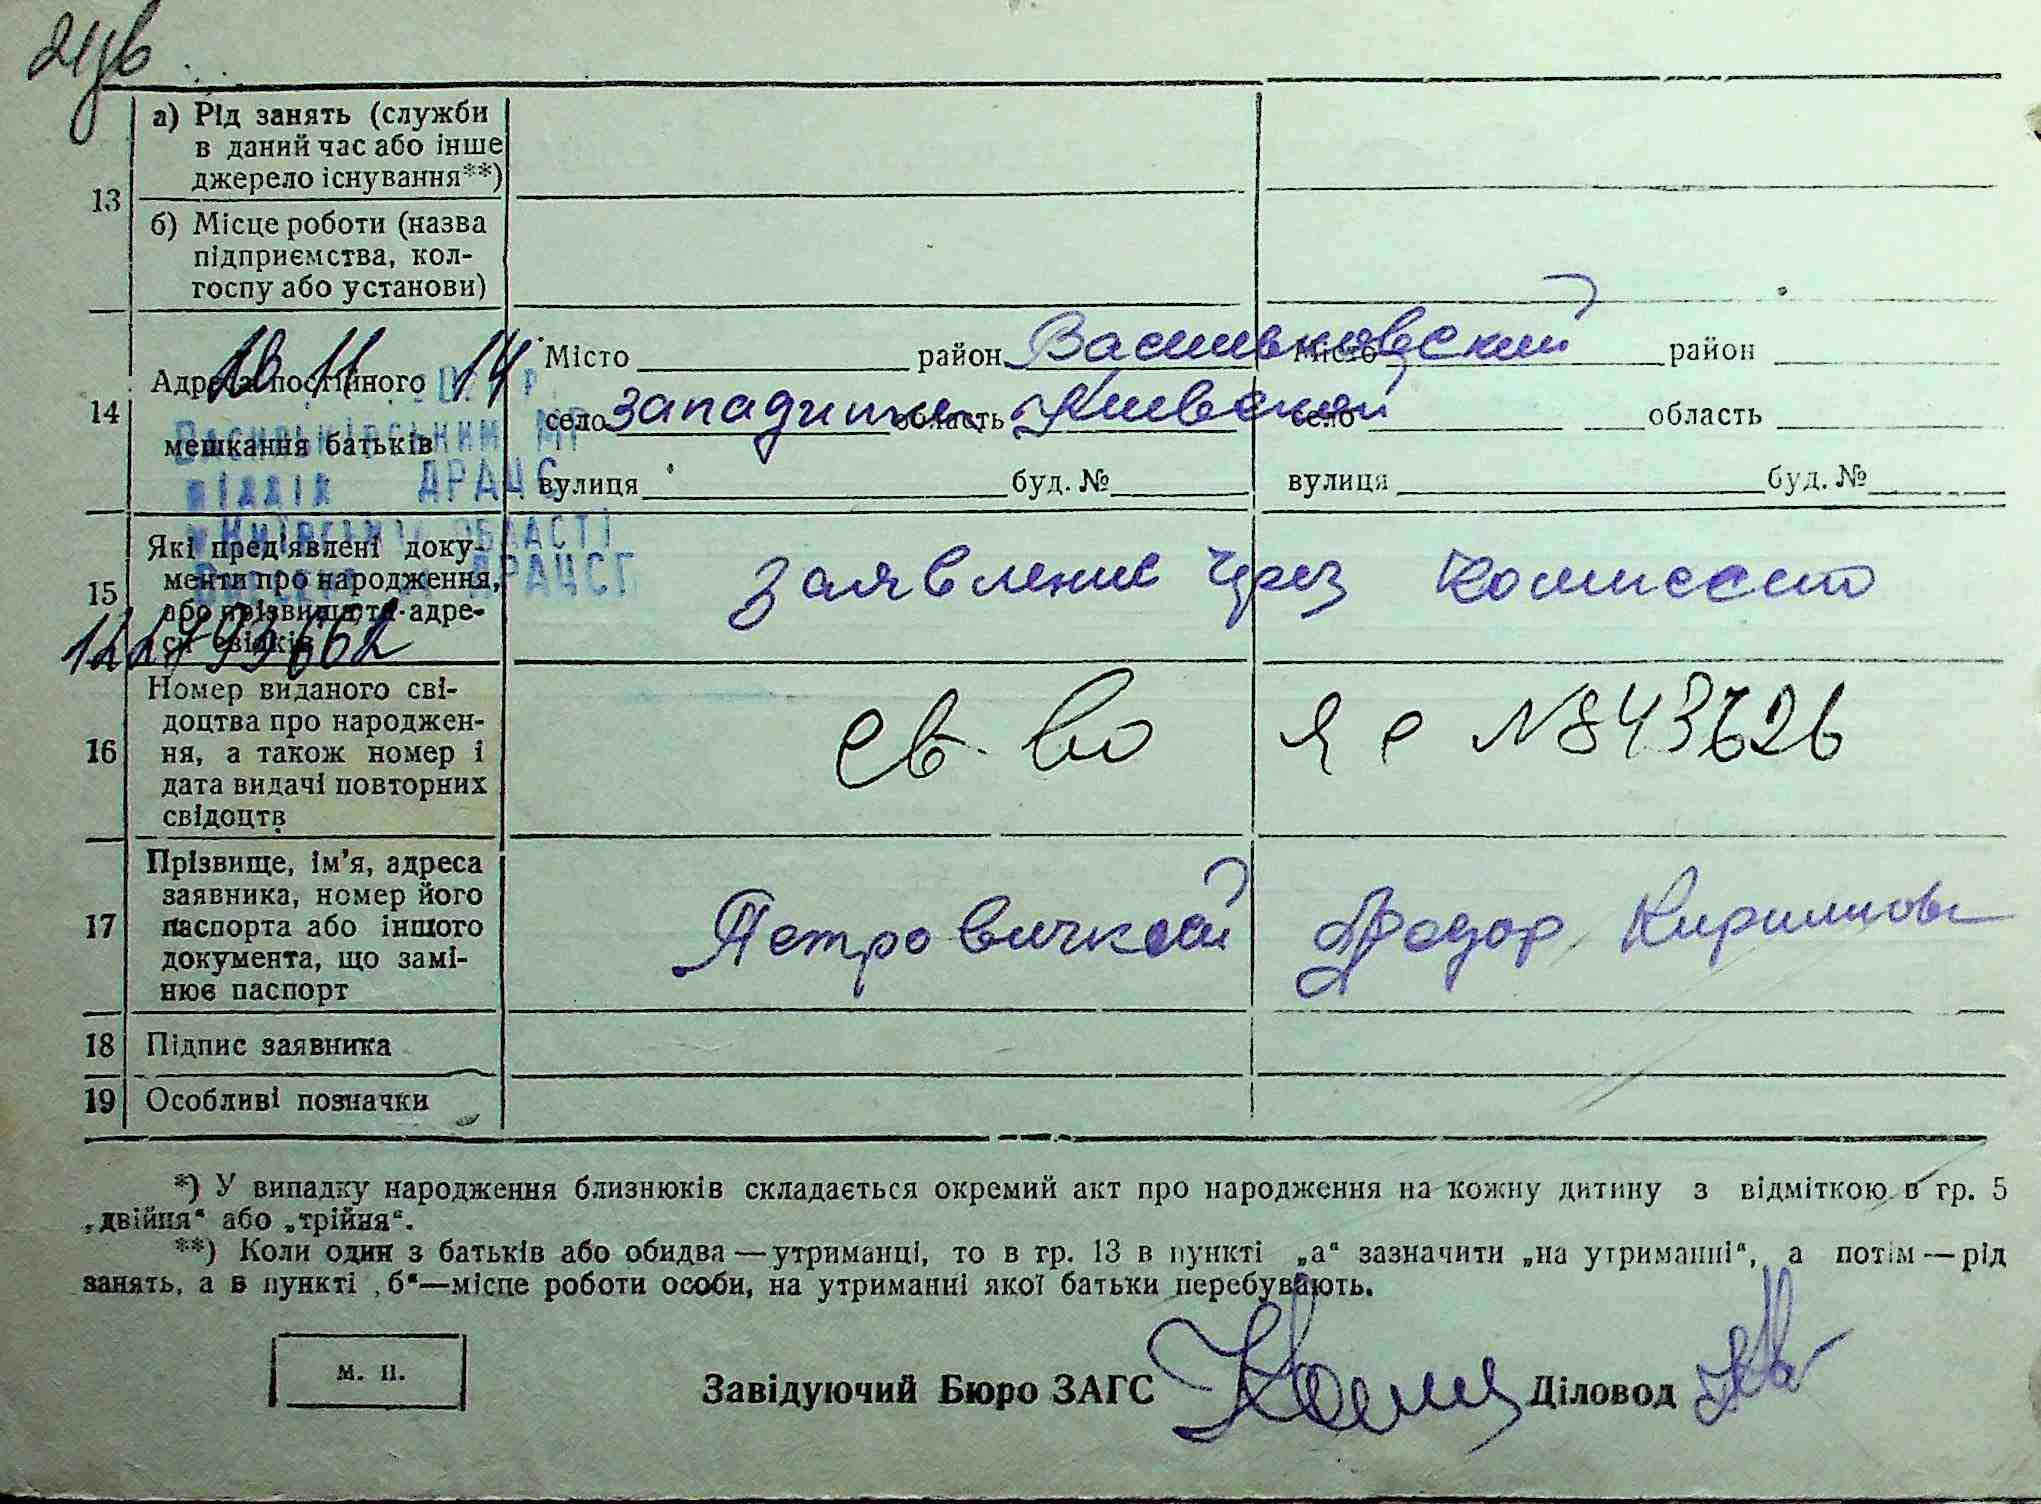 13
а) Рід занять (служби
в даний час або інше
джерело існування**)
б) Місце роботи (назва
підприємства, кол-
госпу або установи)
14
Адреса постійного
мешкання батьків
10 11 14 р
Васильківським МР
відділ ДРАЦС
Київській ОБЛАСТІ
ДРАЦСГ
Місто район Васильковский Місто район
село западинка область Киевской село область
вулиця буд. № вулиця буд. №
15
Які пред'явлені доку-
менти про народження,
або прізвища та адре-
си свідків
заявление через комиссию
16
Номер виданого сві-
доцтва про народжен-
ня, а також номер і
дата видачі повторних
свідоцтв
св-во Я С №843626
17
Прізвище, ім’я, адреса
заявника, номер його
паспорта або іншого
документа, що замі-
нює паспорт
Федор Кирилов
18 Підпис заявника
19 Особливі позначки
*) У випадку народження близнюків складається окремий акт про народження на кожну дитину з відміткою в гр. 5
„двійня“ або „трійня“.
**) Коли один з батьків або обидва — утриманці, то в гр. 13 в пункті „а“ зазначити „на утриманні“, а потім — рід
занять, а в пункті „б“—місце роботи особи, на утриманні якої батьки перебувають.
М. П.
Завідуючий Бюро ЗАГС Діловод